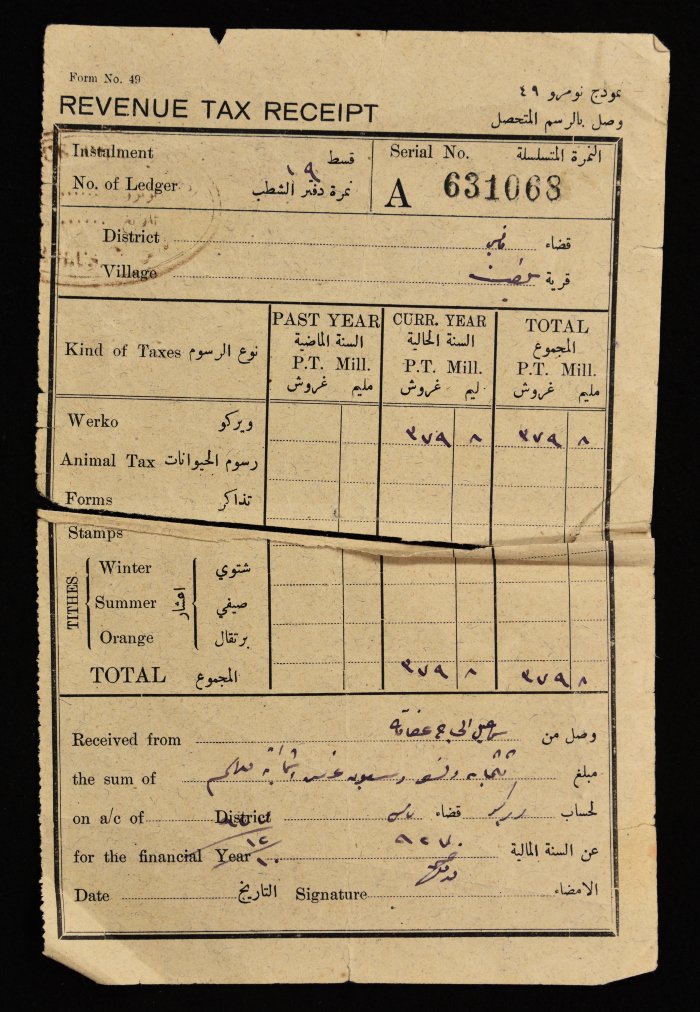 Form No. 49 نموذج نومرو ٤٩
REVENUE TAX RECEIPT وصل بالرسم المتحصل
Instalment قسط Serial No. النمرة المتسلسلة
No. of Ledger ١٩ نمرة دفتر الشطب A 631068
District قضاء
Village قرية
Kind of Taxes نوع الرسوم PAST YEAR CURR. YEAR TOTAL
السنة الماضية السنة الحالية المجموع
P.T. Mill. P.T. Mill. P.T. Mill.
غروش مليم غروش ليم غروش مليم
Werko ويركو ٣٧٩ ٨ ٣٧٩ ٨
Animal Tax رسوم الحيوانات
Forms تذاكر
Stamps
TITHES اعشار
Winter شتوي
Summer صيفي
Orange برتقال
TOTAL المجموع ٣٧٩ ٨ ٣٧٩ ٨
Received from وصل من
the sum of مبلغ
on a/c of District قضاء لحساب
for the financial Year عن السنة المالية
Date التاريخ Signature الامضاء